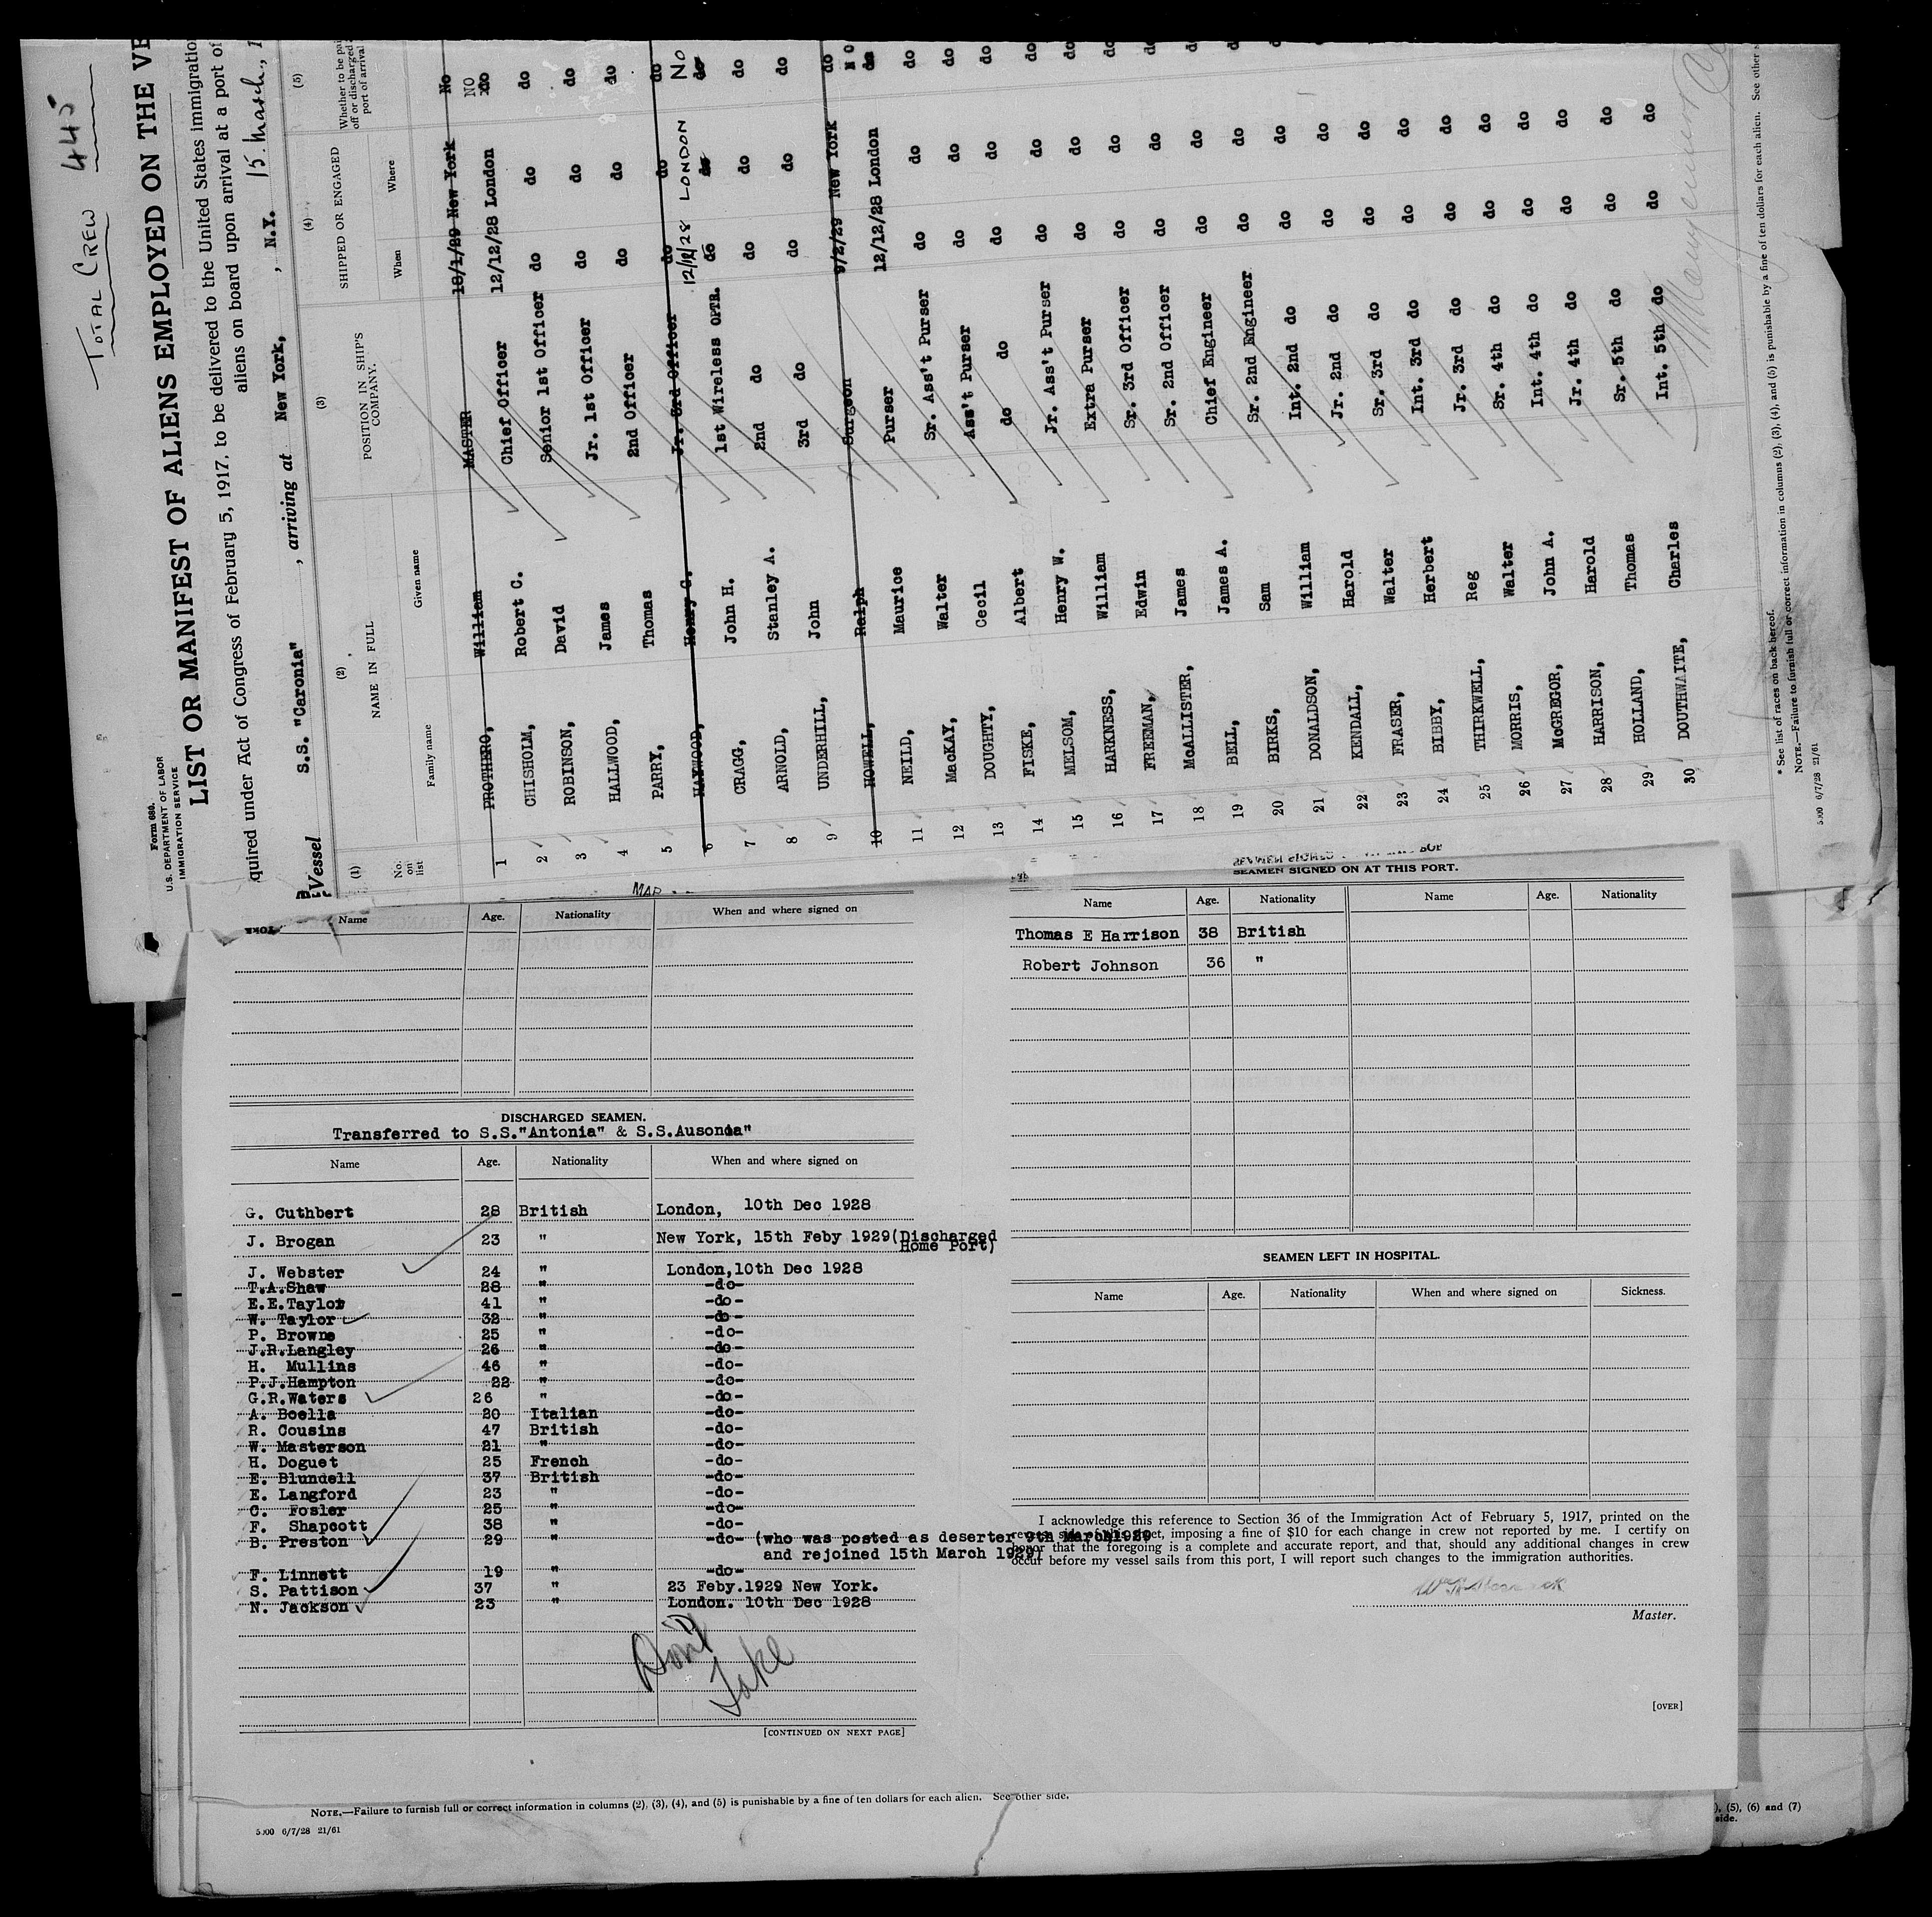 TOTAL CREW 445
Form 680.
U.S. DEPARTMENT OF LABOR
IMMIGRATION SERVICE
LIST OR MANIFEST OF ALIENS EMPLOYED ON THE VE
quired under Act of Congress of February 5, 1917. to be delivered to the United States immigration
aliens on board upon arrival at a port of
Vessel S.S. "Caronia" , arriving at New York, , N.Y. 15 March, 1
(1) (2) (3) (4) (5)
No. on list NAME IN FULL POSITION IN SHIP'S COMPANY. SHIPPED OR ENGAGED Whether to be pai off or discharged port of arrival
Family name Given name When Where
1 PROTHERO, William MASTER 18/1/29 New York No
2 CHISHOLM, Robert C. Chief Officer 12/12/28 London NO do
3 ROBINSON, David Senior 1st Officer do do do
4 HALLWOOD, James Jr. 1st Officer do do do
5 PARRY, Thomas 2nd Officer do do do
6 HAYWOOD, Henry C. Jr. 3rd Officer do do do
7 CRAGG, John H. 1st Wireless OPTR. 12/12/28 LONDON No do do do
8 ARNOLD, Stanley A. 2nd do do do do
9 UNDERHILL, John 3rd do do do do
10 HOWELL, Ralph Surgeon 9/2/29 New York do
11 NEILD, Maurice Purser 12/12/28 London NO do
12 MacKAY, Walter Sr. Ass't Purser do do do
13 DOUGHTY, Cecil Ass't Purser do do do
14 FISKE, Albert do do do do do
15 MELSOM, Henry W. Jr. Ass't Purser do do do
16 HARKNESS, William Extra Purser do do do
17 FREEMAN, Edwin Sr. 3rd Officer do do do
18 McALLISTER, James Sr. 2nd Officer do do do
19 BELL, James A. Chief Engineer do do do
20 BIRKS, Sam Sr. 2nd Engineer do do do
21 DONALDSON, William Int. 2nd do do do do
22 KENDALL, Harold Jr. 2nd do do do
23 FRASER, Walter Sr. 3rd do do do
24 BIBBY, Herbert Int. 3rd do do do
25 THIRKWELL, Reg Jr. 3rd do do do
26 MORRIS, Walter Sr. 4th do do do
27 McGREGOR, John A. Int. 4th do do do
28 HARRISON, Harold Jr. 4th do do do
29 HOLLAND, Thomas Sr. 5th do do do
30 DOUTHWAITE, Charles Int. 5th do do do
* See list of races on back hereof.
NOTE.—Failure to furnish full or correct information in columns (2), (3), (4), and (5) is punishable by a fine of ten dollars for each alien. See other s
5000 6/7/28 21/61
MAR
Name Age. Nationality When and where signed on
DISCHARGED SEAMEN.
Transferred to S.S."Antonia" & S.S.Ausonia"
Name Age. Nationality When and where signed on
G. Cuthbert 28 British London, 10th Dec 1928
J. Brogan 23 " New York, 15th Feby 1929(Discharged
Home Port)
J. Webster 24 " London,10th Dec 1928
T.A.Shaw 28 " -do-
E.E.Taylor 41 " -do-
W. Taylor 32 " -do-
P. Browne 25 " -do-
J.R.Langley 26 " -do-
H. Mullins 46 " -do-
P.J.Hampton 22 " -do-
G.R.Waters 26 " -do-
A. Boella 20 Italian -do-
R. Cousins 47 British -do-
W. Masterson 21 " -do-
H. Doguet 25 French -do-
E. Blundell 37 British -do-
E. Langford 23 " -do-
C. Fosler 25 " -do-
F. Shapcott 38 " -do-
B. Preston 29 " -do- (who was posted as deserter 9th March1929
and rejoined 15th March 1929)
F. Linnett 19 " -do-
S. Pattison 37 " 23 Feby.1929 New York.
N. Jackson 23 " London. 10th Dec 1928
[CONTINUED ON NEXT PAGE]
SEAMEN SIGNED ON AT THIS PORT.
Name Age. Nationality Name Age. Nationality
Thomas E Harrison 38 British
Robert Johnson 36 "
SEAMEN LEFT IN HOSPITAL.
Name Age. Nationality When and where signed on Sickness.
I acknowledge this reference to Section 36 of the Immigration Act of February 5, 1917, printed on the
reverse side of this sheet, imposing a fine of $10 for each change in crew not reported by me. I certify on
honor that the foregoing is a complete and accurate report, and that, should any additional changes in crew
occur before my vessel sails from this port, I will report such changes to the immigration authorities.
Master.
[OVER]
NOTE.—Failure to furnish full or correct information in columns (2), (3), (4), and (5) is punishable by a fine of ten dollars for each alien. See other side.
5000 6/7/28 21/61
), (5), (6) and (7)
side.